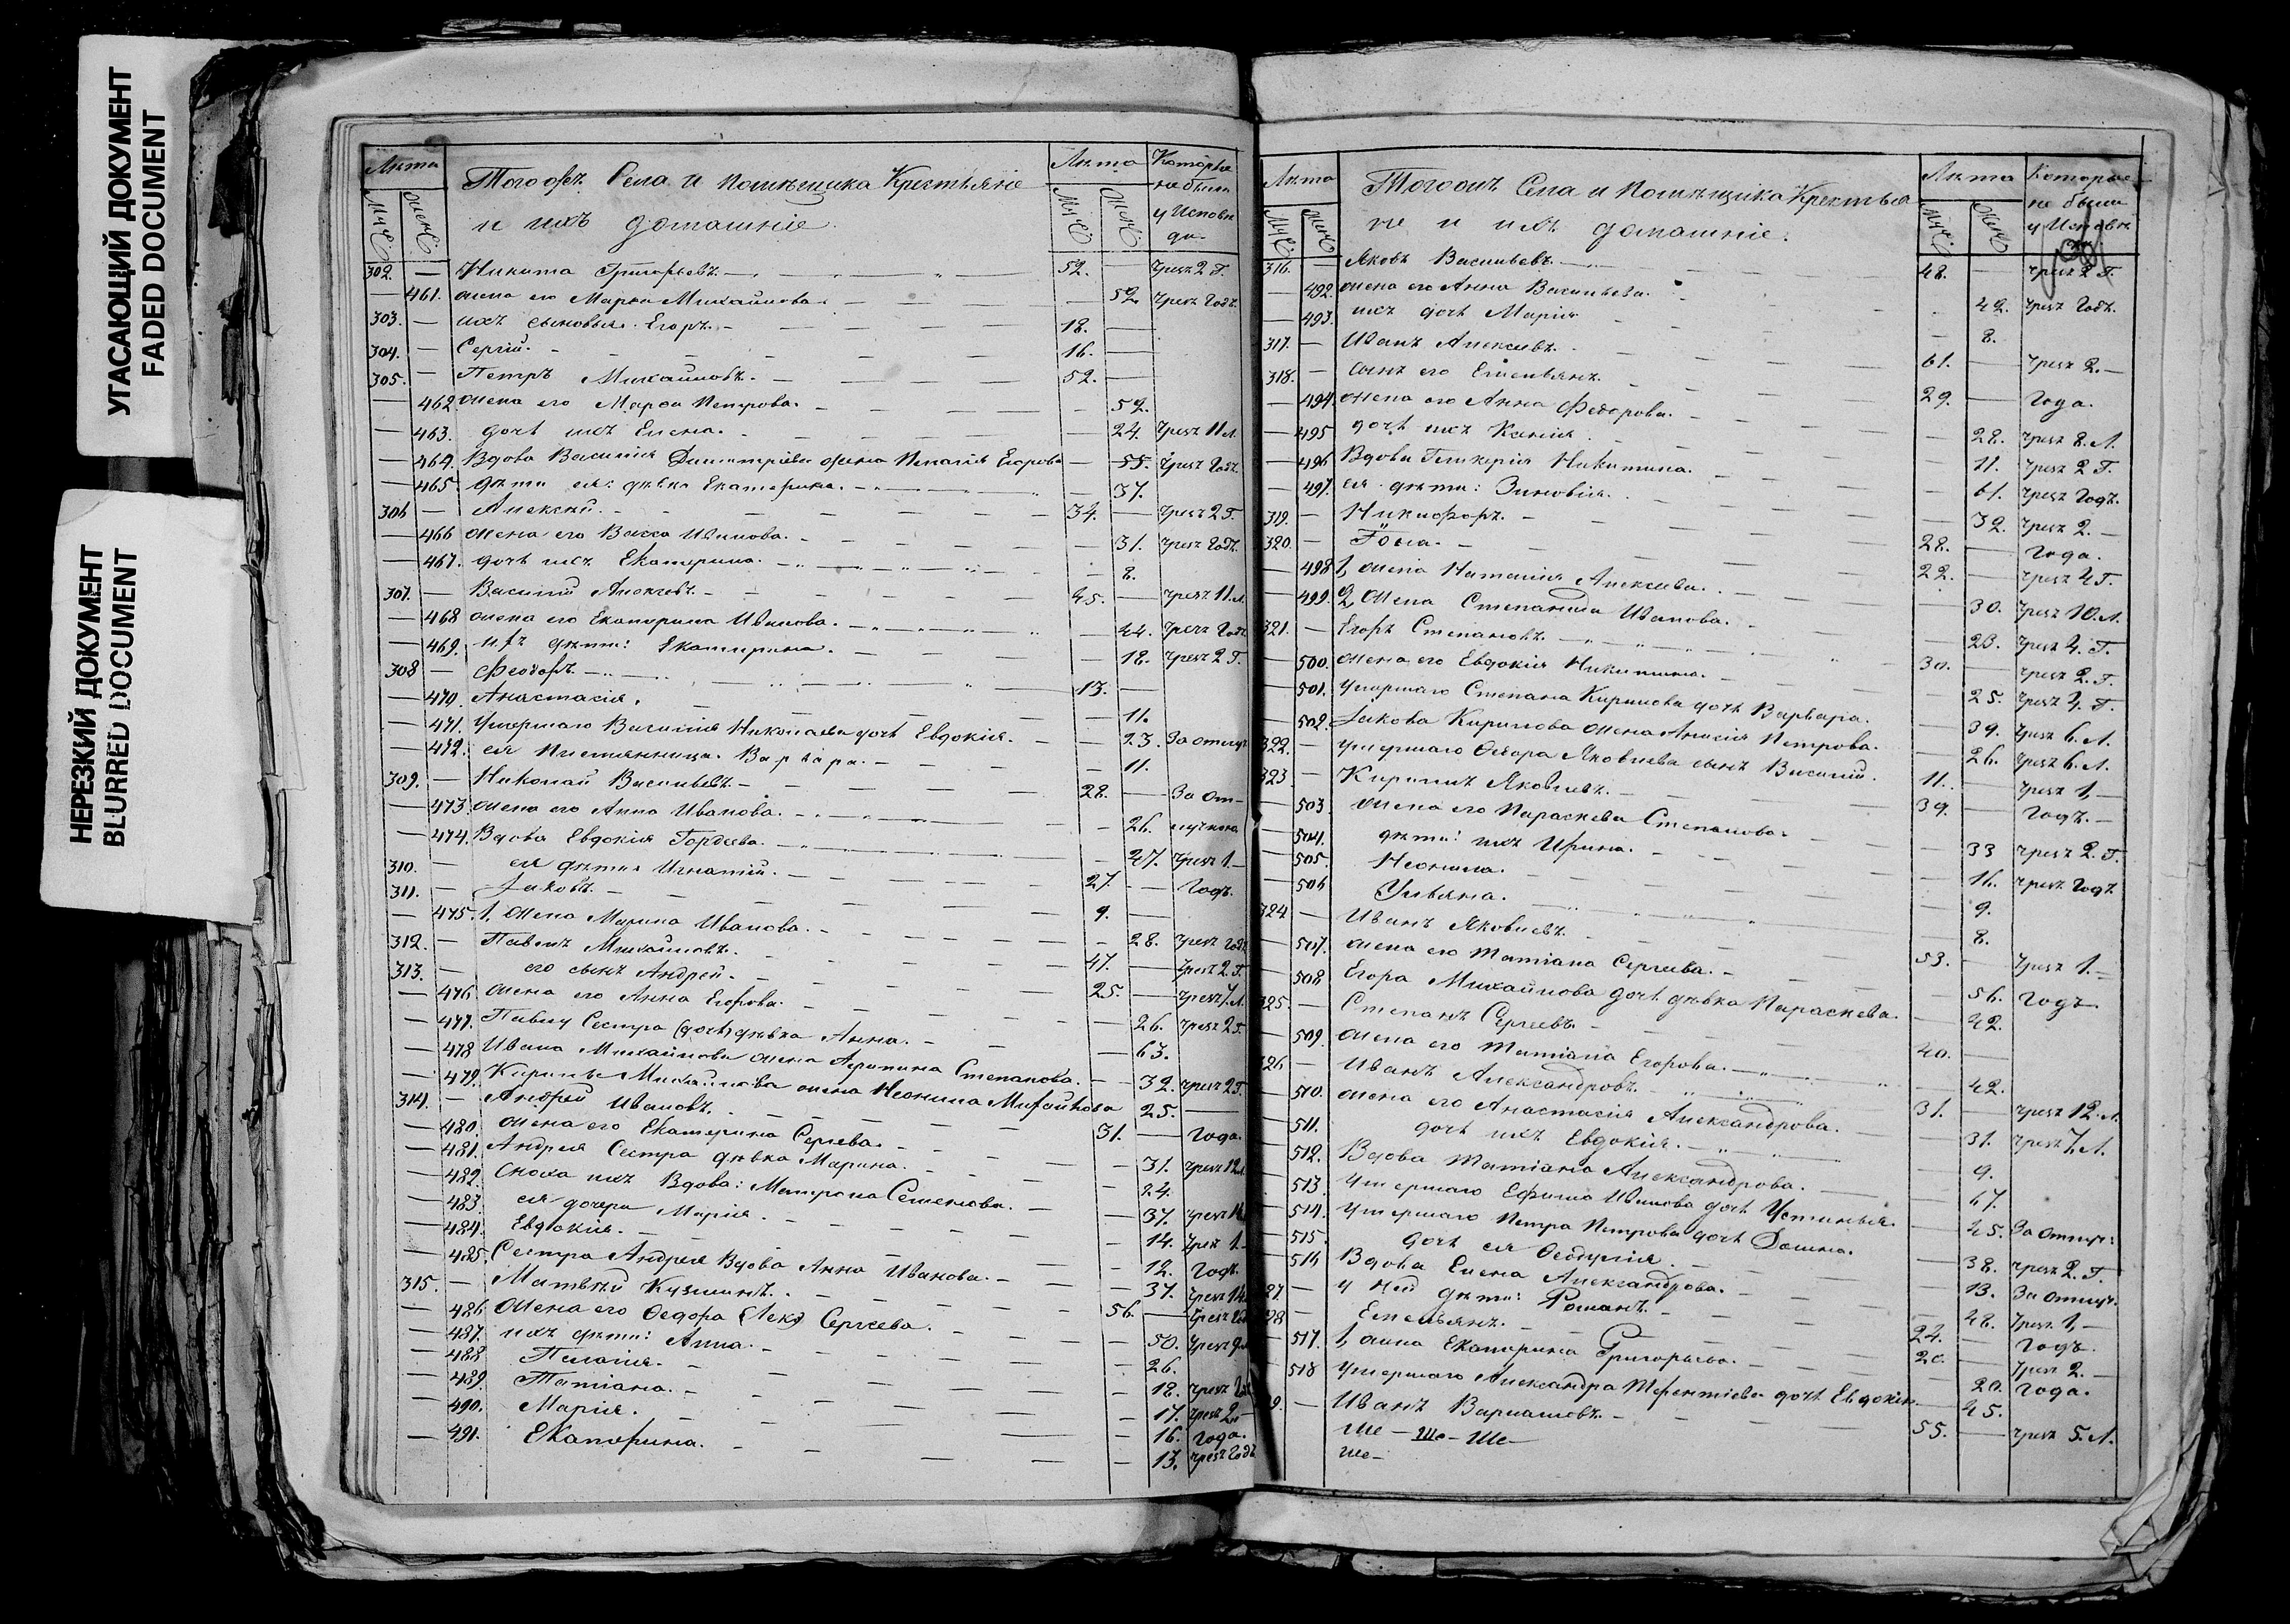 УГАСАЮЩИЙ ДОКУМЕНТ
FADED DOCUMENT
НЕРЕЗКИЙ ДОКУМЕНТ
BLURRED DOCUMENT
Тогожъ Села и помѣщика Крестьяне
и ихъ домашніе.
302. — Никита Григорьевъ. 52. — чрезъ 2 Г.
— 461. жена его Марѳа Михайлова. — 52. чрезъ Годъ.
303. — ихъ сыновья: Егоръ. 18. —
304. — Сергій. 16. —
305. — Петръ Михайловъ. 52. —
— 462. жена его Марѳа Петрова. — 52.
— 463. дочь ихъ Елена. — 24. чрезъ 11 Л.
— 464. Вдова Василія Димитріева жена Пелагія Егорова — 55. чрезъ Годъ.
— 465. дѣти ея: дѣвка Екатерина. — 37.
306 — Алексѣй. 34. — чрезъ 2 Г.
— 466 жена его Васса Иванова. — 31. чрезъ Годъ.
— 467. дочь ихъ Екатерина. — 8.
307. — Василій Алексѣевъ. 45. — чрезъ 11 Л.
— 468 жена его Екатерина Иванова. — 44. чрезъ Годъ
— 469. ихъ дѣти: Екатерина. — 18. чрезъ 2 Г.
308 — Ѳеодоръ. 13. —
— 470. Анастасія. — 11.
— 471. Умершаго Василія Николаева дочь Евдокія. — 23. За отлуч
— 472. ея племянница Варвара. — 11.
309. — Николай Васильевъ. 28. — За от-
— 473. жена его Анна Иванова. — 26. лучкою
— 474. Вдова Евдокія Гордѣева. — 47. чрезъ 1.
310. — ея дѣти Игнатій. 27. — Годъ.
311. — Іаковъ. 9. —
— 475. 1, жена Марина Иванова. — 28. чрезъ Годъ
312. — Павелъ Михайловъ. 47. — чрезъ 2 Г.
313. — его сынъ Андрей. 25. — чрезъ 7 Л.
— 476 жена его Анна Егорова. — 26. чрезъ 2 Г.
— 477. Павлу Сестра (дочь) дѣвка Анна. — 63.
— 478 Ивана Михайлова жена Агрипина Степанова. — 32. чрезъ 2 Г.
— 479. Кирила Михайлова жена Неонила Михайлова 25.
314. — Андрей Ивановъ. 31. — Года.
— 480. жена его Екатерина Сергѣева. — 31. чрезъ 12 Л.
— 481. Андрея Сестра дѣвка Марина. — 24.
— 482. Сноха ихъ Вдова: Матрона Семенова. — 37. чрезъ
— 483. ея дочери Марія. — 14. чрезъ 1.
— 484. Евдокія. — 12. Годъ.
— 485. Сестра Андрея Вдова Анна Иванова. — 37. чрезъ
315. — Матвѣй Кузьминъ. 56. — чрезъ
— 486. жена его Ѳедора Сергѣева. — 50. чрезъ
— 487. ихъ дѣти: Анна. — 26.
— 488 Пелагія. — 18. чрезъ
— 489. Татіана. — 17. чрезъ 2.
— 490. Марія. — 16. Года.
— 491. Екатерина. — 13. чрезъ Годъ
Тогожъ Села и помѣщика Крестья
не и ихъ домашніе.
316. — Яковъ Васильевъ. 48. — чрезъ 2 Г.
— 492. жена его Анна Васильева. — 49. чрезъ Годъ.
— 493. ихъ дочь Марія — 8.
317. — Иванъ Алексѣевъ. 61. — чрезъ 2.
318. — сынъ его Емельянъ. 29. — Года.
— 494. жена его Анна Ѳедорова. — 28. чрезъ 8. Л.
— 495 дочь ихъ Ксенія. — 11. чрезъ 2 Г.
— 496 Вдова Гликерія Никитина. — 61. чрезъ Годъ.
— 497. ея дѣти: Зиновія. — 32. чрезъ 2.
319. — Никифоръ. 28. — Года.
320. — Ѳома. 22. — чрезъ 4 Г.
— 498 1, жена Наталія Алексѣева. — 30. чрезъ 10. Л.
— 499. 2, жена Степанида Иванова. — 23. чрезъ 4. Г.
321. — Егоръ Степановъ. 30. чрезъ 2. Г.
— 500. жена его Евдокія Никитина. — 25. чрезъ 4. Г.
— 501. Умершаго Степана Кирилова дочь Варвара. — 39. чрезъ 6. Л.
— 502. Іакова Кирилова жена Анисія Петрова. — 26. чрезъ 6. Л.
322. — Умершаго Ѳедора Яковлева сынъ Василій. 11. чрезъ 1,
323 — Кирилъ Яковлевъ. 39. Годъ.
— 503 жена его Параскева Степанова. — 33 чрезъ 2. Г.
— 504. дѣти: ихъ Ирина. — 16. чрезъ Годъ
— 505. Неонила. — 9.
— 506 Ульяна. — 8.
324 — Иванъ Яковлевъ. 53. — чрезъ 1.
— 507. жена его Татіана Сергѣева. — 56. Годъ
— 508 Егора Михайлова дочь дѣвка Параскева. — 42.
325 — Степанъ Сергѣевъ. 40. —
— 509. жена его Татіана Егорова. — 42.
326 — Иванъ Александровъ. 31. — чрезъ 12. Л.
— 510. жена его Анастасія Александрова. — 31. чрезъ 7. Л.
— 511. дочь ихъ Евдокія. — 9.
512. Вдова Татіана Александрова. — 67.
513. Умершаго Ефима Иванова дочь Устинья. — 45. За отлуч:
514. Умершаго Петра Петрова дочь Домна. — 38. чрезъ 2. Г.
515. дочь ея Ѳеодулія. — 13. За отлуч.
516 Вдова Елена Александрова. — 48. чрезъ 1,
— у ней дѣти: Романъ. 24. — Годъ.
— Емельянъ. 20. — чрезъ 2.
— 517. 1, жена Екатерина Григорьева. — 20. Года.
— 518 Умершаго Александра Терентіева дочь Евдокія. — 45.
— Иванъ Варламовъ. 55. — чрезъ 5. Л.